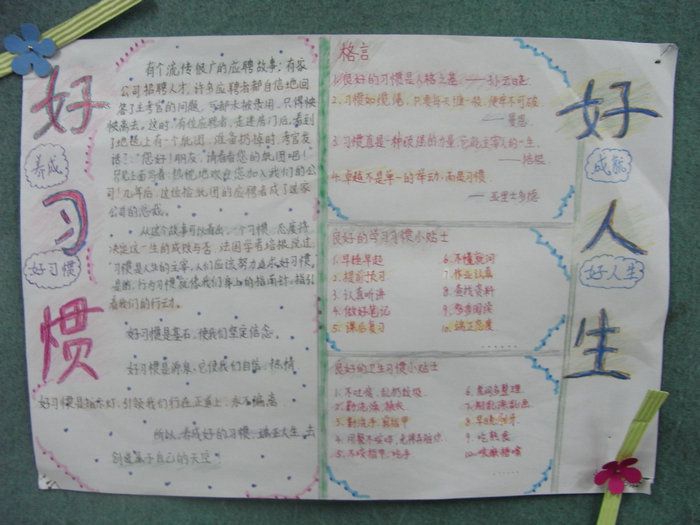 好习惯
养成
好习惯
有个流传很广的应聘故事：有家
公司招聘人才，许多应聘者都自信地回
答了主考官的问题，可都未被录用，只得怏
怏离去。这时，有位应聘者，走进房门后，看到
了地毯上有一个纸团
准备扔掉时，考官发
话了：“您好！朋友，请看看您的纸团吧！
热忱地欢迎您加入我们的公
司！几年后，这位捡纸团的应聘者成了这家
公司的总裁。
从这个故事可以看出，一个习惯，
决定这一生的成败与否，法国学者培根说过，
习惯是人生的主宰，人们应该努力追求好习惯，
是的，行为习惯就像我们身上的指南针，指引
着我们的行动。
好习惯是基石，使我们坚定信念。
好习惯是源泉，它使我们自信、热情
好习惯是指示灯，引领我们行在正道上，永不偏离
所以，养成好的习惯，端正人生，去
创造属于自己的天空！
格言
1.良好的习惯是人格之基。——孙云晓
2.习惯如缆绳，只要每天缠一股，便牢不可破
——曼恩
3.习惯真是一种顽强的力量，它能主宰人的一生。
——培根
4.卓越不是单一的举动，而是习惯。
——亚里士多德
良好的学习习惯小贴士
1.早睡早起
2.提前预习
3.认真听讲
4.做好笔记
5.课后复习
6.不懂就问
7.作业认真
8.查找资料
9.多多阅读
10.端正态度
……
良好的卫生习惯小贴士
1.不吐痰、乱扔垃圾
2.勤洗澡、换衣
3.勤洗手、剪指甲
4.用餐不咳嗽、
5.不咬指甲、吃手
8.早晚刷牙
……
好人生
成就
好人生